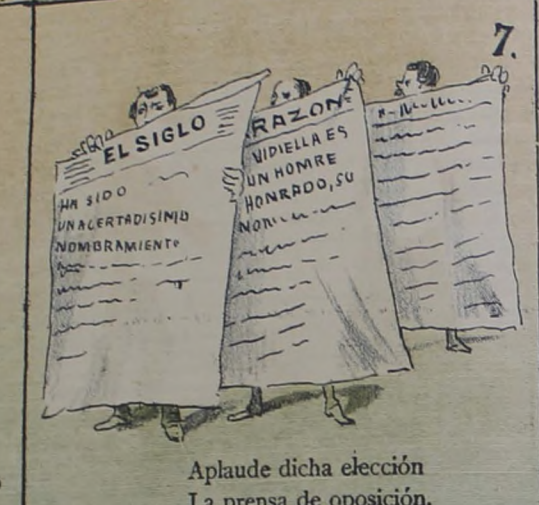 7.
EL SIGLO
HA SIDO
UN ACERTADISIMO
NOMBRAMIENTO
RAZON
VIDIELLA ES
UN HOMRE
HONRADO, SU
Aplaude dicha elección
La prensa de oposición.